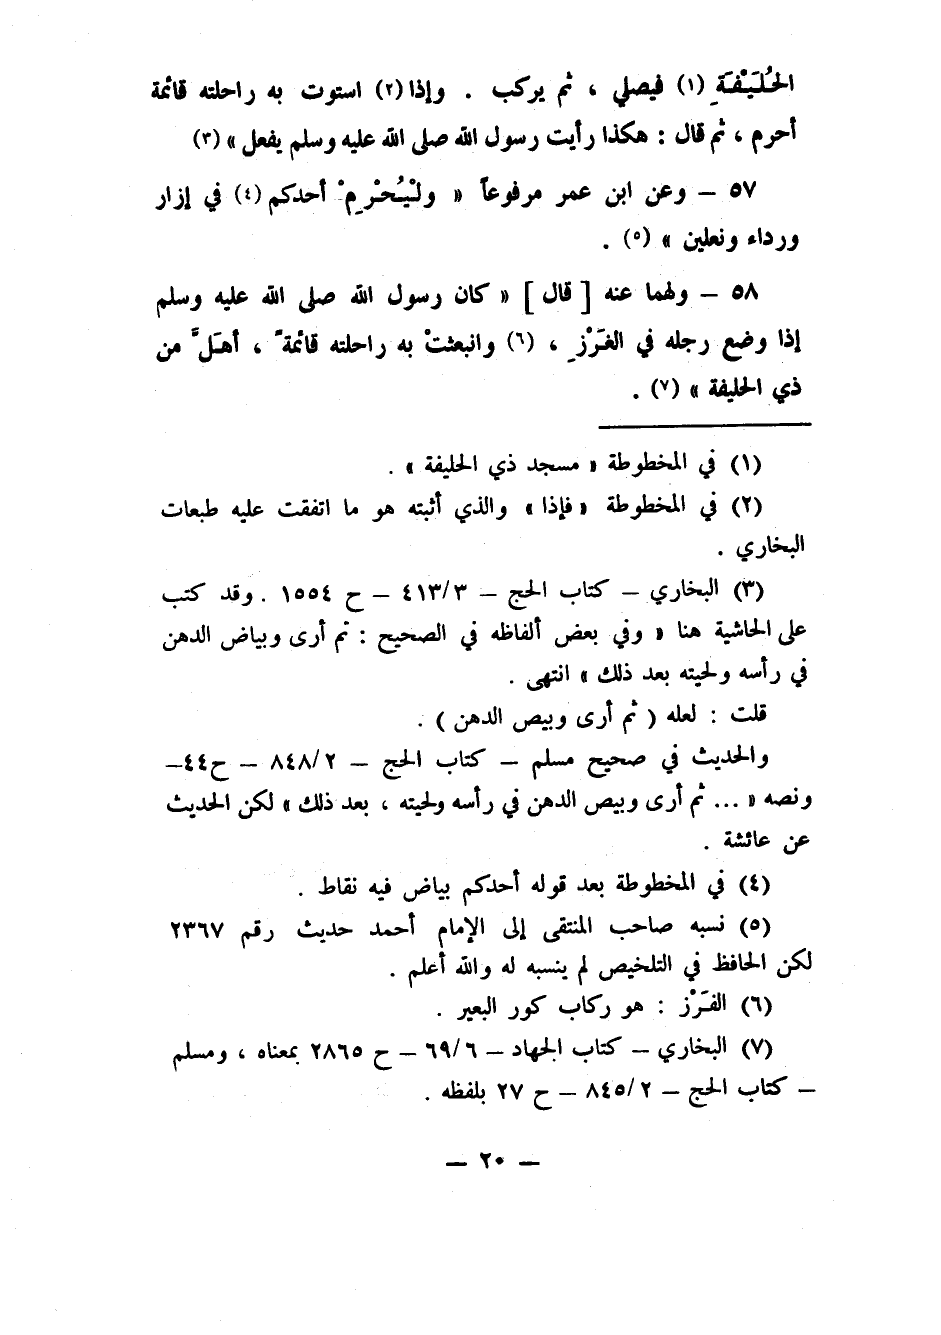 الحُلَيْفَةِ (١) فيصلي ، ثم يركب . وإذا (٢) استوت به راحلته قائمة
أحرم ، ثم قال : هكذا رأيت رسول الله صلى الله عليه وسلم يفعل » (٣)
٥٧ – وعن ابن عمر مرفوعاً « ولْيُحْرِمْ أحدكم (٤) في إزار
ورداء ونعلين » (٥) .
٥٨ – ولهما عنه [ قال ] « كان رسول الله صلى الله عليه وسلم
إذا وضع رجله في الغَرْزِ ، (٦) وانبعثتْ به راحلته قائمةً ، أهَلَّ من
ذي الحليفة » (٧) .
(١) في المخطوطة « مسجد ذي الحليفة » .
(٢) في المخطوطة « فإذا » والذي أثبته هو ما اتفقت عليه طبعات
البخاري .
(٣) البخاري – كتاب الحج – ٤١٣/٣ – ح ١٥٥٤ . وقد كتب
على الحاشية هنا « وفي بعض ألفاظه في الصحيح : ثم أرى وبياض الدهن
في رأسه ولحيته بعد ذلك » انتهى .
قلت : لعله ( ثم أرى وبيص الدهن ) .
والحديث في صحيح مسلم – كتاب الحج – ٨٤٨/٢ – ح٤٤–
ونصه « ... ثم أرى وبيص الدهن في رأسه ولحيته ، بعد ذلك » لكن الحديث
عن عائشة .
(٤) في المخطوطة بعد قوله أحدكم بياض فيه نقاط .
(٥) نسبه صاحب المنتقى إلى الإمام أحمد حديث رقم ٢٣٦٧
لكن الحافظ في التلخيص لم ينسبه له والله أعلم .
(٦) الغَرْز : هو ركاب كور البعير .
(٧) البخاري – كتاب الجهاد – ٦٩/٦ – ح ٢٨٦٥ بمعناه ، ومسلم
– كتاب الحج – ٨٤٥/٢ – ح ٢٧ بلفظه .
– ٢٠ –